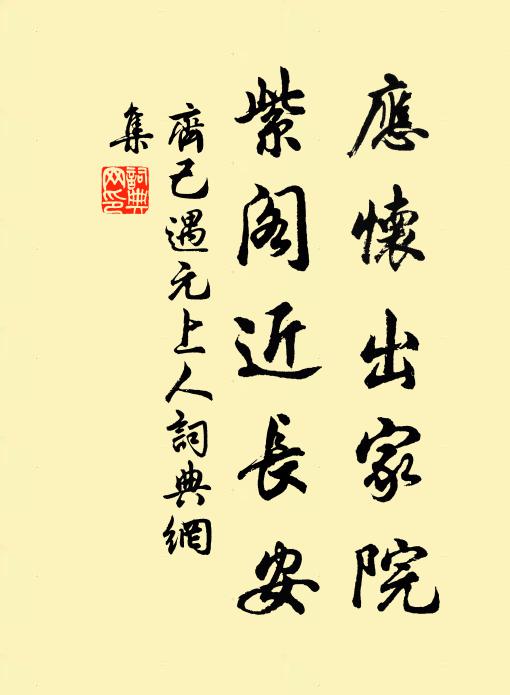 應懷出家院
紫阁近長安
齊己遇元上人詞典網
集
詞典
网印